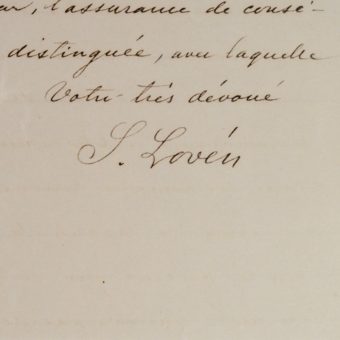 ur, l'assurance de consé-
distinguée, avec laquelle
Votre très dévoué
S. Lovén